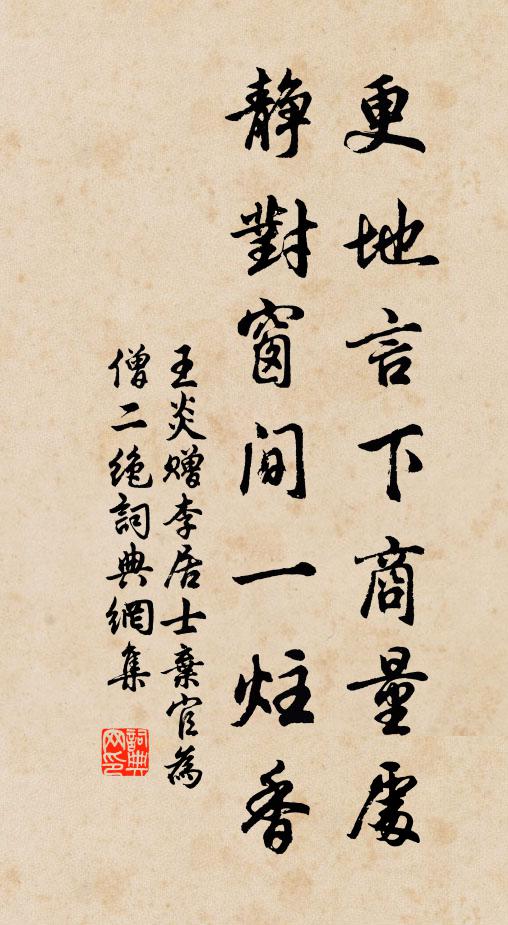 更地言下商量處
静對窗间一炷香
王炎赠李居士棄官為
僧二绝詞典網集
詞典
网印